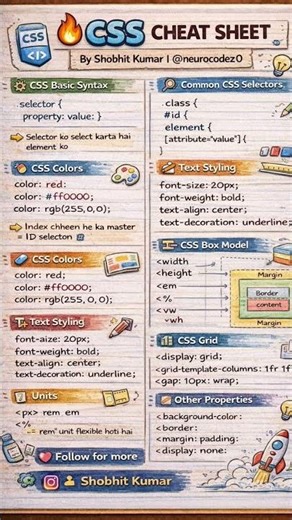 CSS
</>
CSS CHEAT SHEET
By Shobhit Kumar | @neurocodez0
CSS Basic Syntax
selector {
property: value: }
Selector ko select karta hai
element ko
CSS Colors
color: red:
color: #ff0000;
color: rgb(255,0,0);
Index chheen he ka master
= ID selecton
CSS Colors
color: red;
color: #ff0000;
color: rgb(255, 0, 0);
Text Styling
font-size: 20px;
font-weight: bold;
text-align: center;
text-decoration: underline;
Units
<px> rem em
<%
== rem" unit flexible hoti hai
Follow for more
Shobhit Kumar
Common CSS Selectors
.class {
#id {
element {
[attribute="value"] {
}
Text Styling
font-size: 20px;
font-weight: bold;
text-align: center;
text-decoration: underline;
CSS Box Model
<width
<height
<em
<%
<vw
vwh
Margin
Border
content
Margin
CSS Grid
<display: grid;
<grid-template-columns: 1fr 1f
<gap: 10px: wrap;
Other Properties
<background-color:
<border:
<margin: padding:
<display: none: